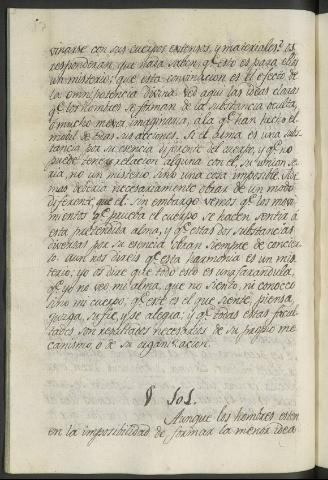 vinarse con sus cuerpos extensos, y materiales? os
responderan, que nada saben; qᵉ esto es para ellos
un misterio; que esta convinacion es el efecto de
la omnipotencia divina. ved aqui las ideas claras
qᵉ los hombres se forman de la substancia oculta,
ò mucho mexor imaginaria, a la qᵉ han hecho el
mobil de todas sus acciones. Si el alma es una subs-
tancia por su esencia diferente del cuerpo, y qᵉ no
puede tener relacion alguna con el, su union se-
ria, no un misterio sino una cosa imposible. Ade-
mas deberia necesariamente obrar de un modo
diferente, que el: sin embargo vemos qᵉ los movi-
mientos qᵉ prueva el cuerpo se hacen sentir à
esta pretendida alma, y qᵉ estas dos substancias
diversas por su esencia obran siempre de concier-
to. aun nos direis qᵉ esta harmonia es un mis-
terio; yo os dire que todo esto es una farandula,
qᵉ yo no veo mi alma, que no siento, ni conozco
sino mi cuerpo; qᵉ este es el que siente, piensa,
juzga, sufre, y se alegra; y qᵉ todas estas facul-
tades son resultados necesarios de su propio me-
canismo, ò de su organizacion.
§ 101.
Aunque los hombres esten
en la imposibilidad de formar la menor idea